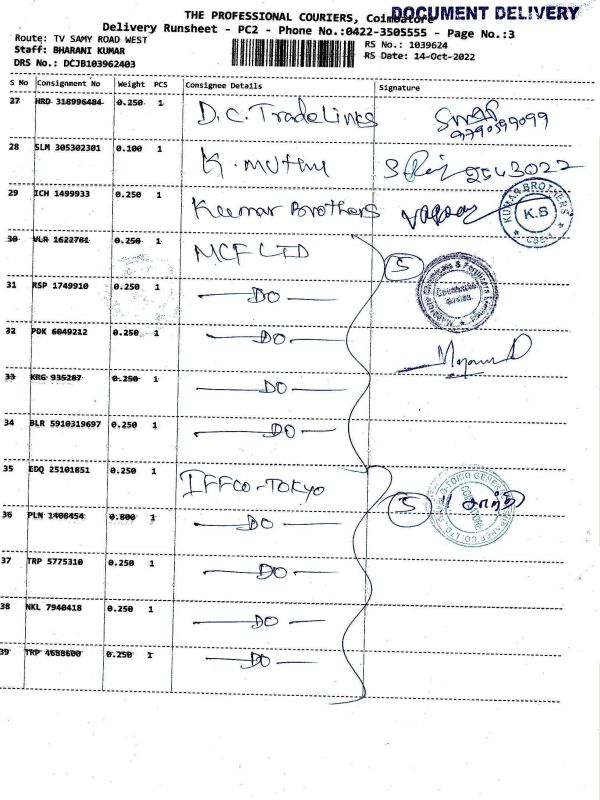 THE PROFESSIONAL COURIERS, Coimbatore
DOCUMENT DELIVERY
Delivery Runsheet - PC2 - Phone No.:0422-3505555 - Page No.:3
Route: TV SAMY ROAD WEST
RS No.: 1039624
Staff: BHARANI KUMAR
RS Date: 14-Oct-2022
DRS No.: DCJB103962403
S No Consignment No Weight PCS Consignee Details Signature
27 HRD 318996484 0.250 1 D.C. TradeLines
9790599099
28 SLM 305302301 0.100 1 K. muthu
29 ICH 1499933 0.250 1 Kumar Brothers
KUMAR BROTHERS K.S CBE-1
30 VLR 1622761 0.250 1 MCF LTD 5
31 RSP 1749910 0.250 1 DO
32 PDK 6049212 0.250 1 DO
33 KRG 935287 0.250 1 DO
34 BLR 5910319697 0.250 1 DO
35 EDQ 25101851 0.250 1 IFFCO-TOKYO 5
36 PLN 1408454 0.800 1 DO
37 TRP 5775310 0.250 1 DO
38 NKL 7940418 0.250 1 DO
39 TRP 4688600 0.250 1 DO